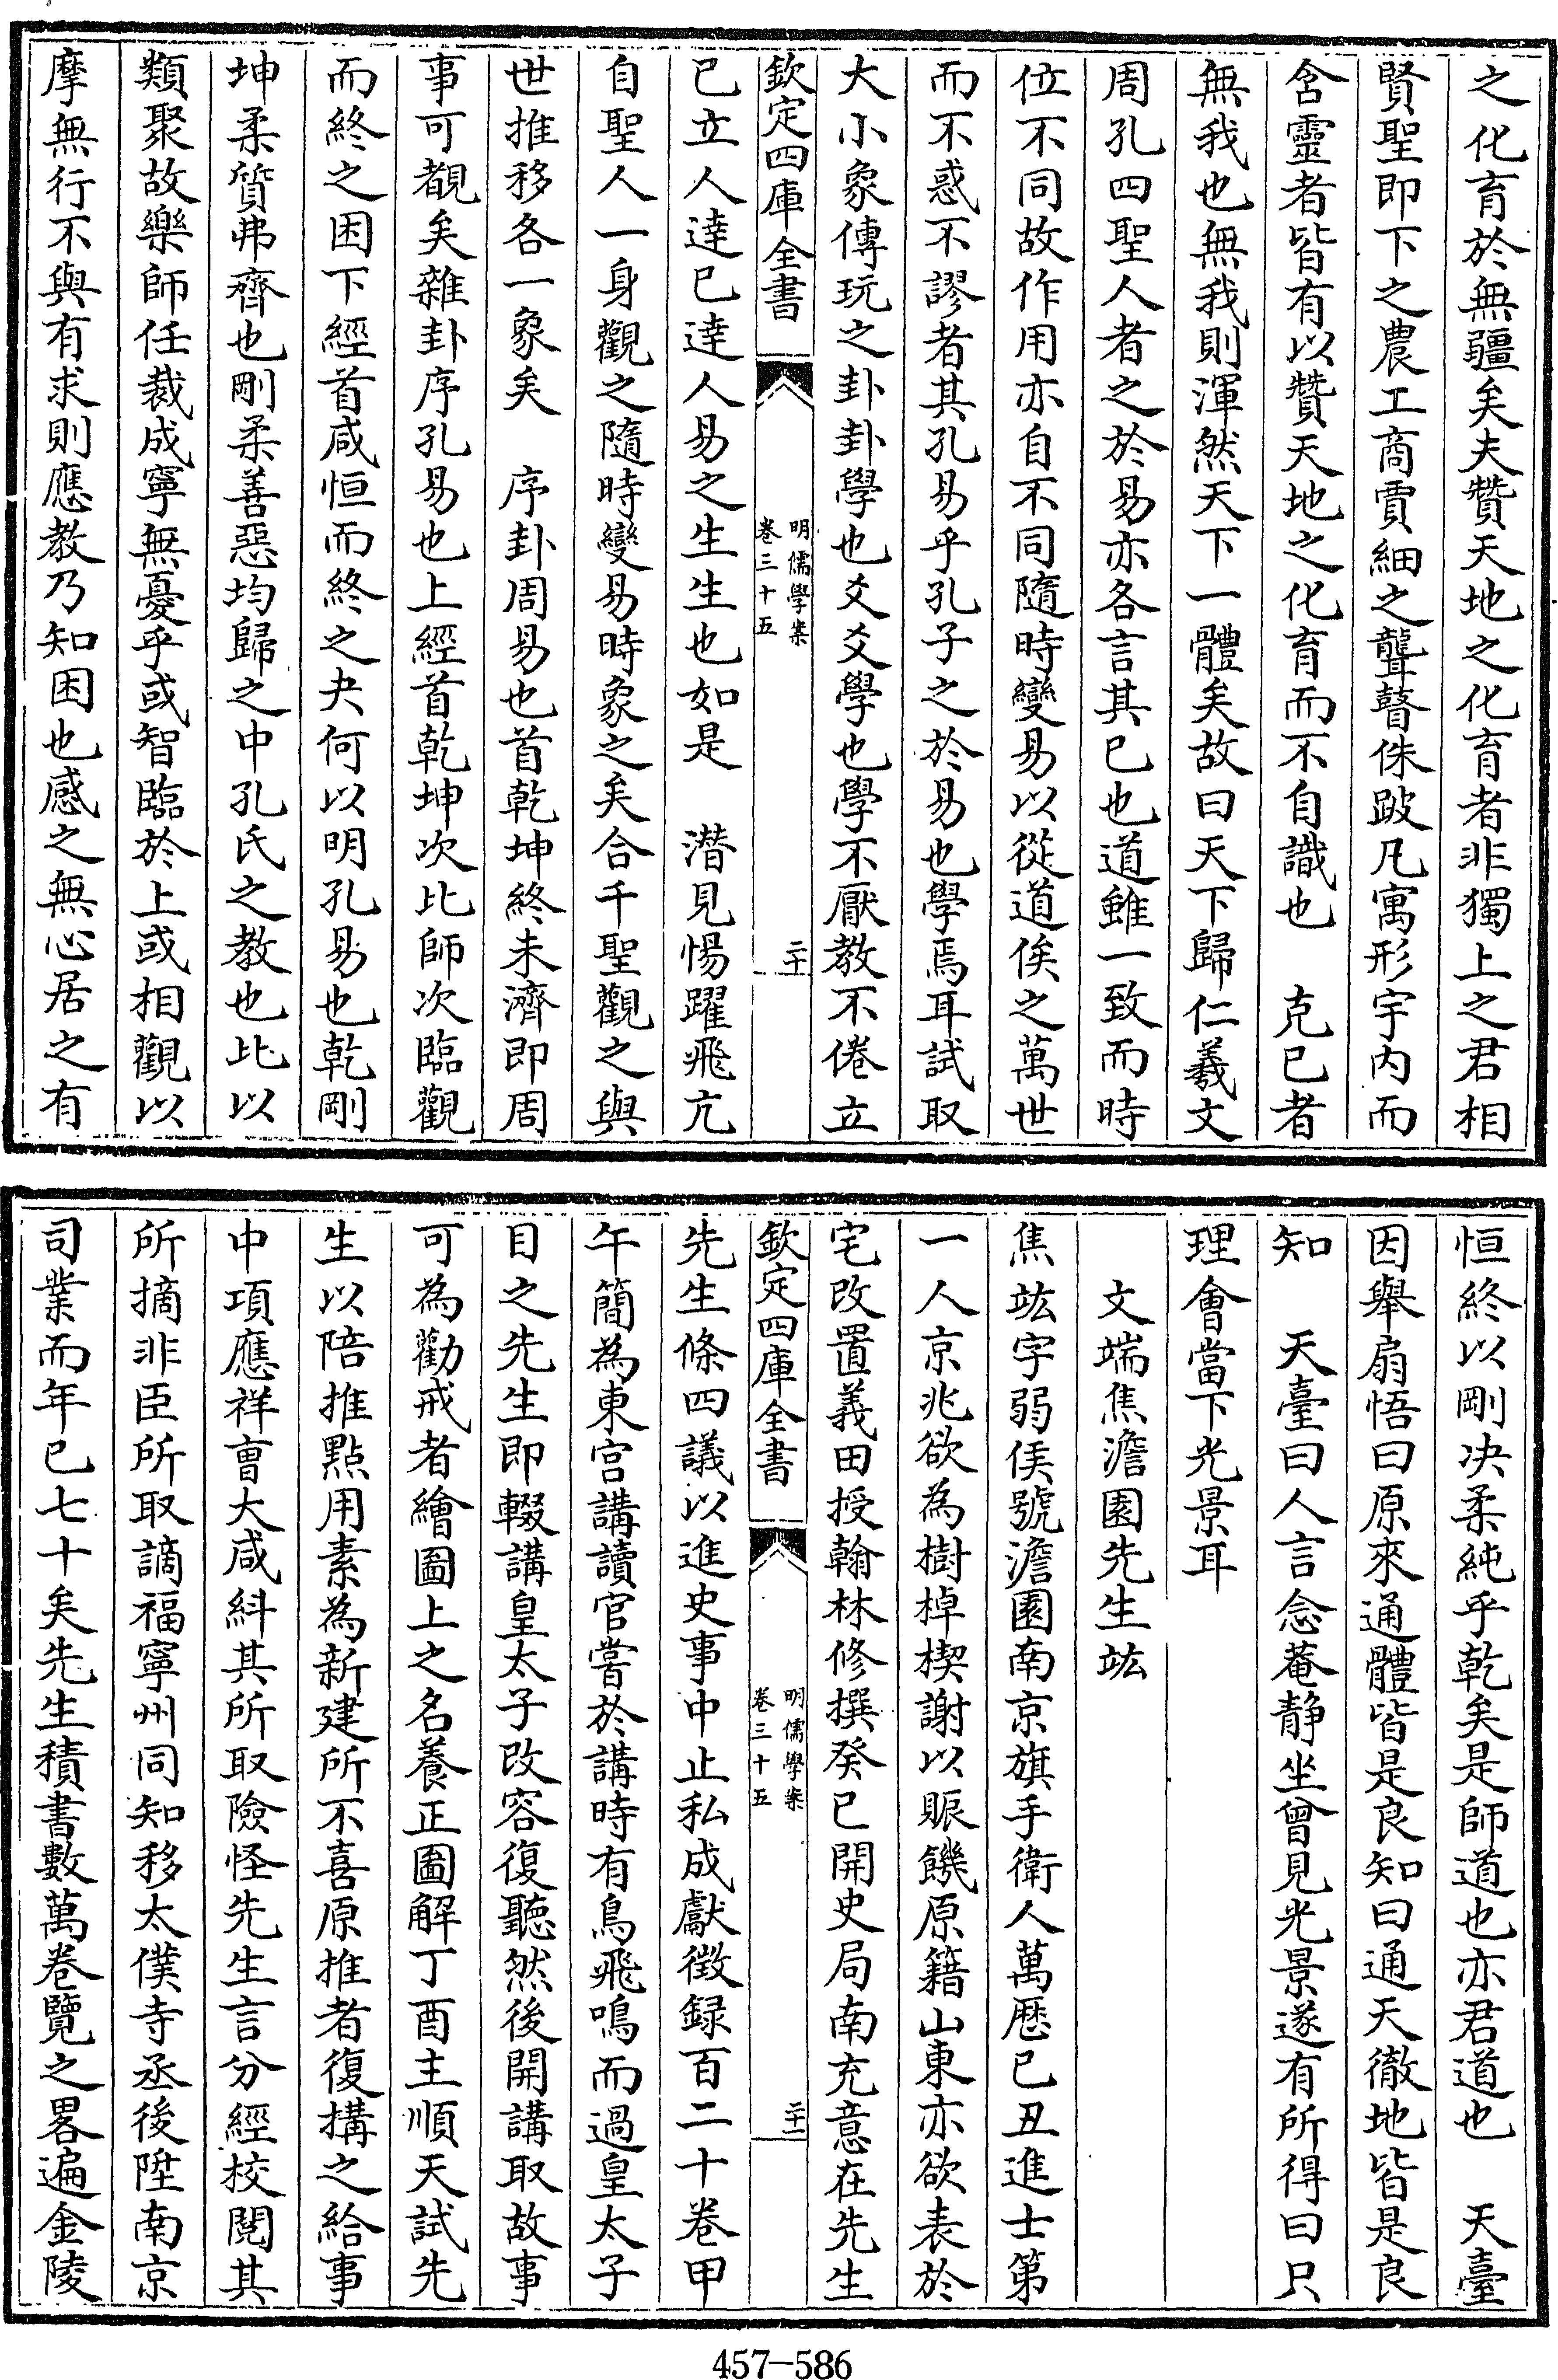 之化育於無疆矣夫贊天地之化育者非獨上之君相
賢聖即下之農工商賈細之聾瞽侏跛凡寓形宇内而
含靈者皆有以贊天地之化育而不自識也　克已者
無我也無我則渾然天下一體矣故曰天下歸仁羲文
周孔四聖人者之於易亦各言其已也道雖一致而時
位不同故作用亦自不同隨時變易以從道俟之萬世
而不惑不謬者其孔易乎孔子之於易也學焉耳試取
大小象傳玩之卦卦學也爻爻學也學不厭教不倦立
欽定四庫全書　明儒學案　卷三十五　二十
已立人達已達人易之生生也如是　潜見惕躍飛亢
自聖人一身觀之隨時變易時象之矣合千聖觀之與
世推移各一象矣　序卦周易也首乾坤終未濟即周
事可覩矣雜卦序孔易也上經首乾坤次比師次臨觀
而終之困下經首咸恒而終之夬何以明孔易也乾剛
坤柔質弗齊也剛柔善惡均歸之中孔氏之教也比以
類聚故樂師任裁成寧無憂乎或智臨於上或相觀以
摩無行不與有求則應教乃知困也感之無心居之有
恒終以剛决柔純乎乾矣是師道也亦君道也　天臺
因舉扇悟曰原來通體皆是良知曰通天徹地皆是良
知　天臺曰人言念菴静坐曾見光景遂有所得曰只
理會當下光景耳
文端焦澹園先生竑
焦竑字弱侯號澹園南京旗手衛人萬厯已丑進士第
一人京兆欲為樹棹楔謝以賑饑原籍山東亦欲表於
宅改置義田授翰林修撰癸已開史局南充意在先生
欽定四庫全書　明儒學案　卷三十五　二十一
先生條四議以進史事中止私成獻徴録百二十卷甲
午簡為東宫講讀官嘗於講時有鳥飛鳴而過皇太子
目之先生即輟講皇太子改容復聽然後開講取故事
可為勸戒者繪圖上之名養正圖解丁酉主順天試先
生以陪推點用素為新建所不喜原推者復搆之給事
中項應祥曺大咸糾其所取險怪先生言分經校閲其
所摘非臣所取謫福寧州同知移太僕寺丞後陞南京
司業而年已七十矣先生積書數萬卷覽之畧遍金陵
457-586